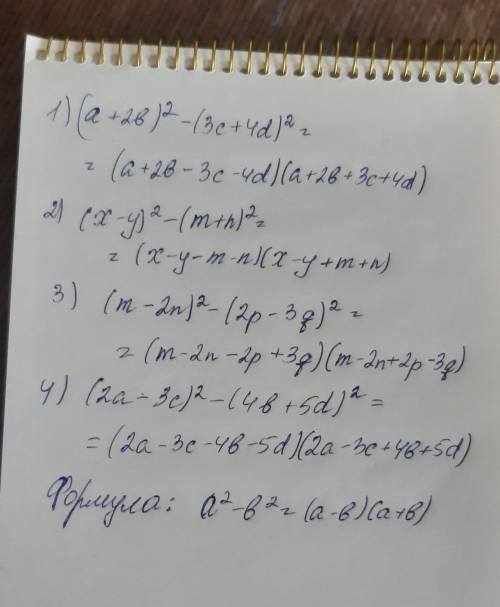 1) (a+2в)² -(3c+4d)² =
= (a+2в-3c-4d)(a+2в+3c+4d)
2) (x-y)² -(m+n)² =
= (x-y-m-n)(x-y+m+n)
3) (m-2n)² -(2p-3q)² =
= (m-2n-2p+3q)(m-2n+2p-3q)
4) (2a-3c)² -(4в+5d)² =
= (2a-3c-4в-5d)(2a-3c+4в+5d)
Формула: a²-в² = (a-в)(a+в)